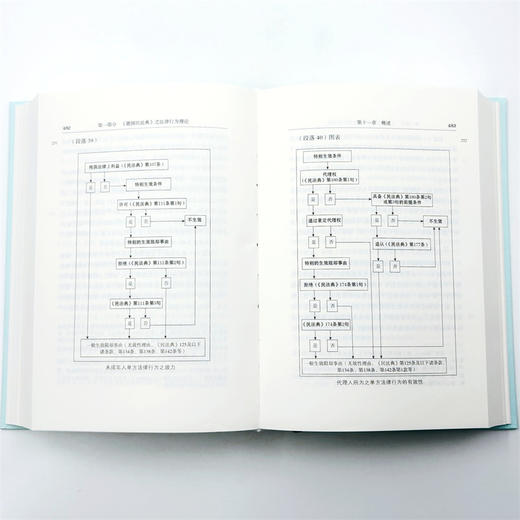 482
第一部分 《德国民法典》之法律行为理论
（段落39）
纯获法律上利益（《民法典》第107条）
是
否
特别生效条件
许可（《民法典》第111条第1句）
是
否
不生效
特别的生效阻却事由
拒绝（《民法典》第111条第2句）
是
否
《民法典》第111条第3句
是
否
一般生效阻却事由（无效性理由，《民法典》125及以下
诸条款，第134条、第138条、第142条等）
未成年人单方法律行为之效力
第十一章 概述
483
（段落40）图表
特别生效条件
代理权
（《民法典》第180条第1句）
是
否
具备《民法典》第180条第2句
或第3句的前提条件
通过肯定代理权
是
否
不生效
是
否
特别的生效阻却事由
追认（《民法典》第177条）
是
否
拒绝（《民法典》174条第1句）
是
否
《民法典》174条第2句
是
否
一般生效阻却事由（无效性理由，《民法典》第125条及以下诸条款，
第134条、第138条、第142条第1款等）
代理人所为之单方法律行为的有效性